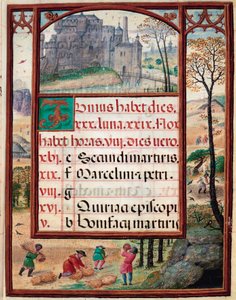 Iunius habet dies.
xxx. luna. xxix. Nox
habet horas. viii. dies vero.
xbj. e Secundi martiris.
xix. f Marcelini ⁊ petri.
viii. g
xvj. Quiriaci episcopi
v. b Bonifacij martiris